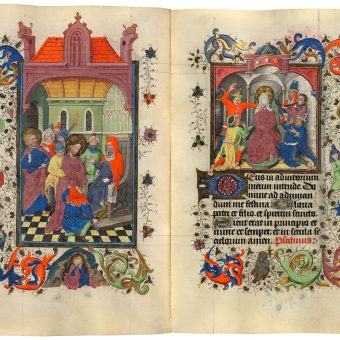 Deus in adiutorium
meum intende Do
mine ad adiuuan
dum me festina Gloria
patri et filio et spiritui sancto
Sicut erat in principio et
nunc et semper et in secula se
culorum amen. Psalmus